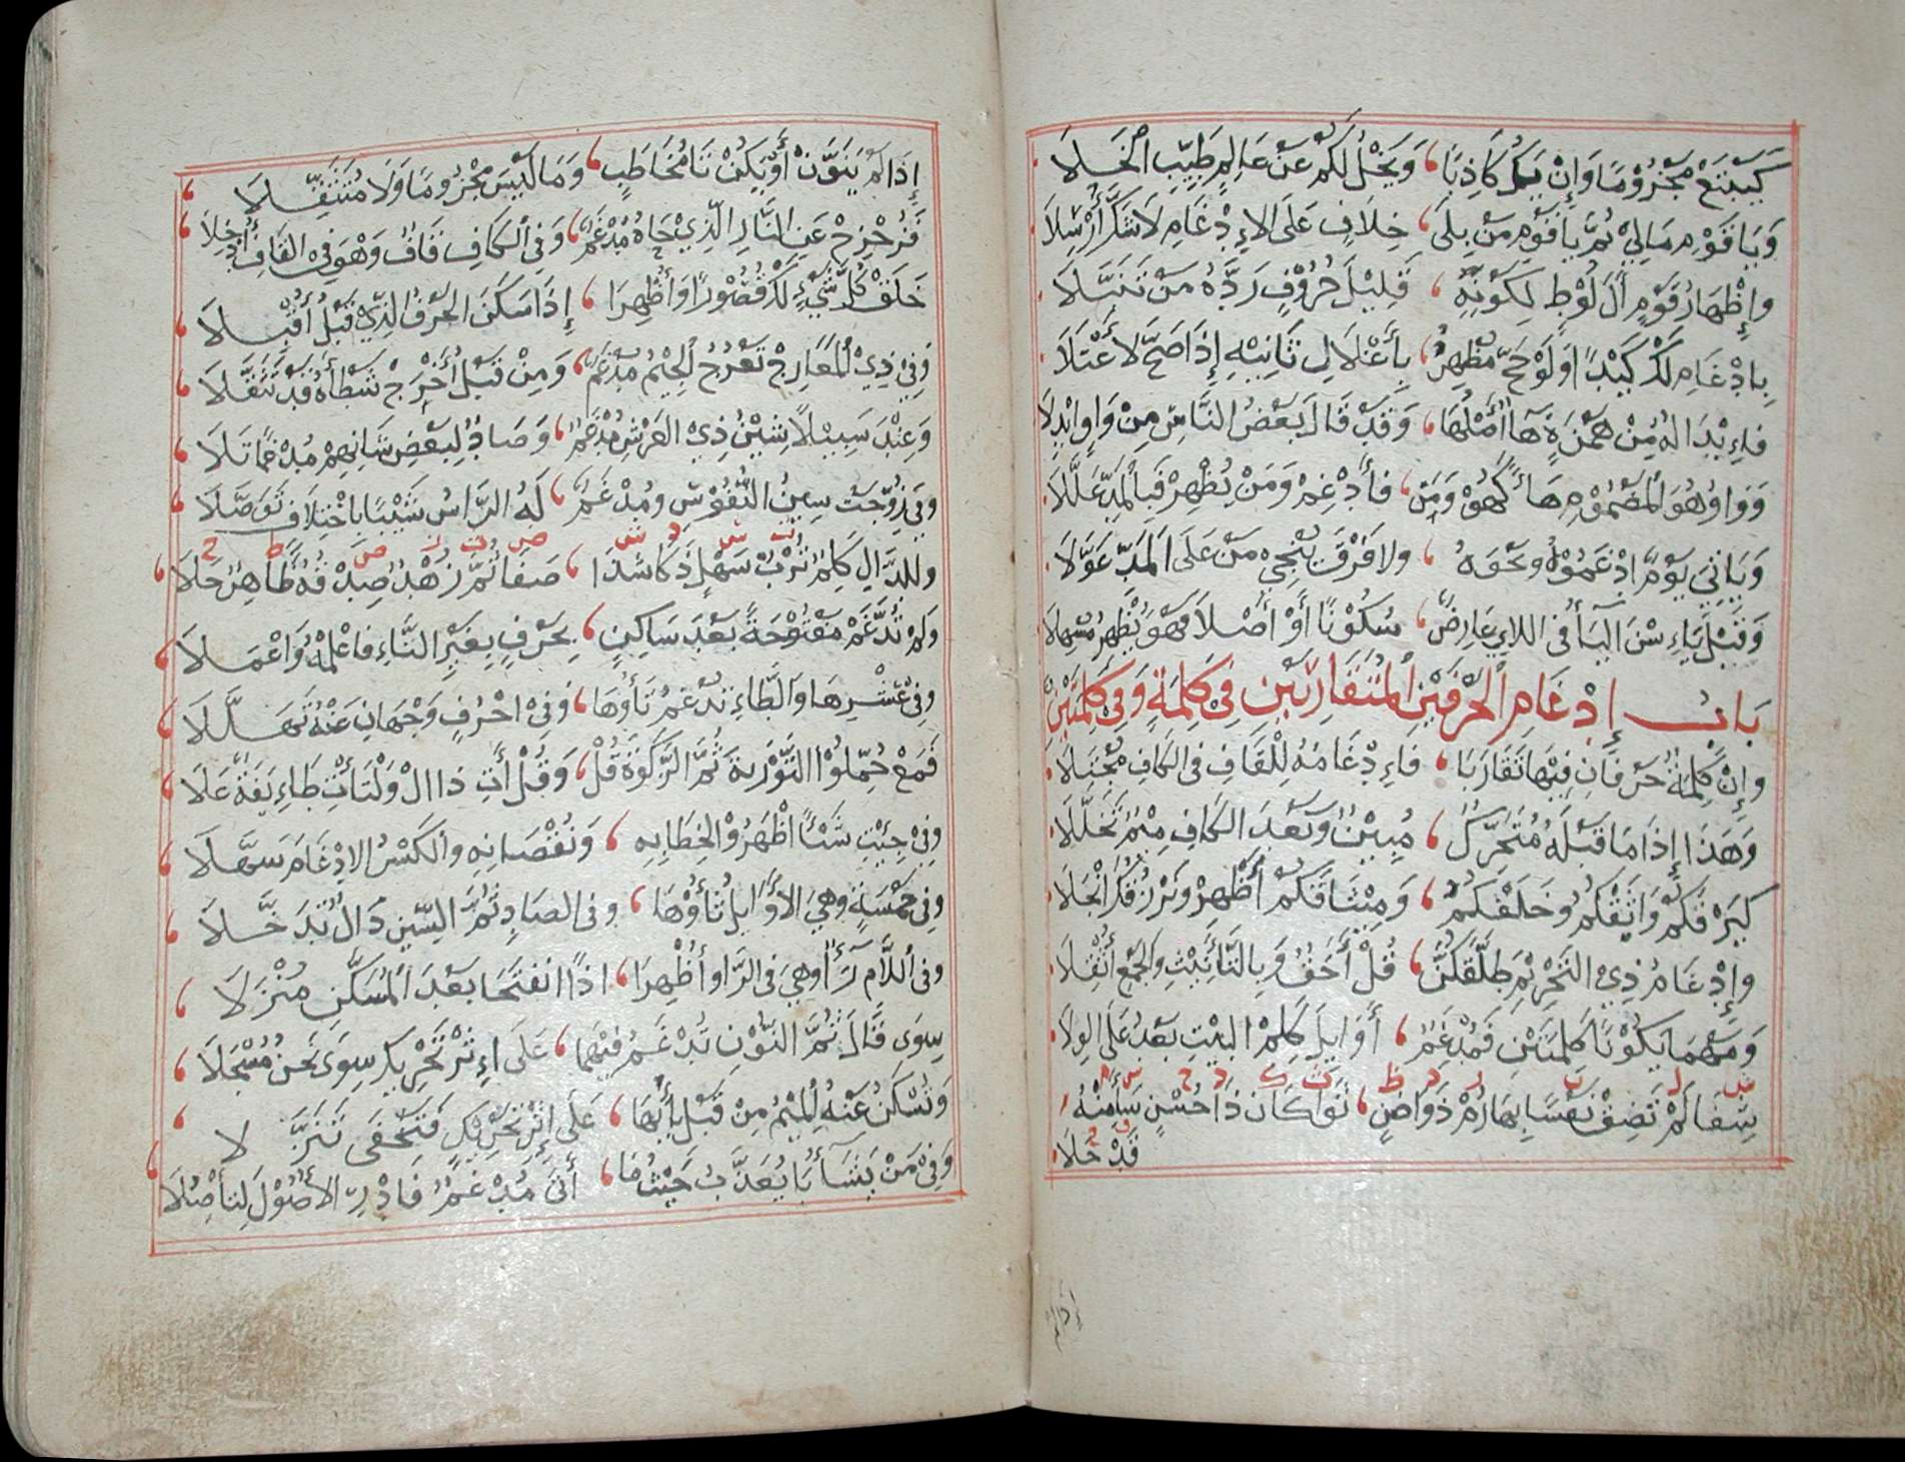 كَيَبْتَغْ مَجْزُوْمًا وَإِنْ يَكُ كَاذِبًا، وَيَخْلُ لَكُمْ عَنْ عَالِمٍ طَيِّبِ الْخَلَا
وَيَا قَوْمِ مَالِيْ ثُمَّ يَا قَوْمِ مَنْ بِلَى، خِلَافٍ عَلَى الاِدْغَامِ لَا شَكَّ أُرْسِلَا
وَإِظْهَارُ قَوْمٍ أَلَ لُوْطٍ لِكَوْنِهِ، قَلِيْلَ حُرُوْفٍ رَدَّهُ مَنْ تَنَبَّلَا
بِادْغَامِ لَكَ كَيْدًا وَلَوْ حَجَّ مُظْهِرٌ، بِأَعْلَالِ ثَانِيْهِ إِذَا صَحَّ لَاعْتَلَا
فَإِبْدَالُهُ مِنْ هَمْزَةٍ هَاأُ أَصْلُهَا، وَقَدْ قَالَ بَعْضُ النَّاسِ مِنْ وَاوٍ ابْدِلَا
وَوَاوُ هُوَ الْمَضْمُوْمِ هَاءً كَهُوْ وَمَنْ، فَأَدْغِمْ وَمَنْ يُظْهِرْ فَبِالْمَدِّ عَلَّلَا
وَيَاتِيَ يَوْمٌ ادْغَمُوْهُ وَنَحْوَهُ، وَلَا فَرْقَ يُنْجِيْ مَنْ عَلَى الْمَدِّ عَوَّلَا
وَقَبْلَ يَئِسْنَ الْيَأُ فِي اللَّايِ عَارِضٌ، سُكُوْنًا أَوْ أَصْلًا فَهْوَ يُظْهِرُ مُسْهِلَا
بَابُ إِدْغَامِ الْحَرْفَيْنِ الْمُتَقَارِبَيْنِ فِيْ كَلِمَةٍ وَفِيْ كَلِمَتَيْنِ
وَإِنْ كَلِمَةٌ حَرْفَانِ فِيْهَا تَقَارَبَا، فَاِدْغَامُهُ لِلْقَافِ فِي الْكَافِ مُجْتَلَا
وَهَذَا إِذَا مَا قَبْلَهُ مُتَحَرِّكٌ، مُبِيْنٌ وَبَعْدَ الْكَافِ مِيْمٌ تَخَلَّلَا
كَيَرْزُقْكُمُ وَاثَقْكُمُ وَخَلَقْكُمُ، وَمِيْثَاقَكُمْ أَظْهِرْ وَنَرْزُقُكَ انْجَلَا
وَإِدْغَامُ ذِي التَّحْرِيْمِ طَلَّقَكُنَّ، قُلْ أَحَقُّ وَبِالتَّأْنِيْثِ وَالْجَمْعِ أُثْقِلَا
وَمَهْمَا يَكُوْنَا كَلِمَتَيْنِ فَمُدْغَمٌ، أَوَايِلَ كِلْمِ الْبَيْتِ بَعْدُ عَلَى الْوِلَا
شِفَا لَمْ تَضِقْ نَفْسًا بِهَا رُمْ دَوَا ضَنٍ، ثَوَا كَانَ ذَا حُسْنٍ سَأَ مِنْهُ
قَدْ حَلَا
إذا لم
إِذَا لَمْ يُنَوَّنْ أَوْ يَكُنْ تَا مُخَاطَبٍ، وَمَا لَيْسَ مَجْزُومًا وَلَا مُتَثَقِّلَا
فَزُحْزِحَ عَنِ النَّارِ الَّذِيْ حَاهُ مُدْغَمٌ، وَفِي الْكَافِ قَافٌ وَهْوَ فِي الْقَافِ أُدْخِلَا
خَلَقْ كُلَّ شَيْءٍ لَكْ قُصُوْرًا وَأُظْهِرَا، إِذَا سَكَنَ الْحَرْفُ الَّذِيْ قَبْلُ أَقْبَلَا
وَفِيْ ذِيْ الْمَعَارِجْ تَعْرُجُ الْجِيْمُ مُدْغَمٌ، وَمِنْ قَبْلُ أَخْرَجْ شَطْأَهُ قَدْ تَثَقَّلَا
وَعِنْدَ سَبِيْلًا شِيْنُ ذِيْ الْعَرْشِ مُدْغَمٌ، وَضَادُ لِبَعْضِ شَانِهِمْ مُدْغَمًا تَلَا
وَفِيْ زُوِّجَتْ سِيْنُ النُّفُوْسِ وَمُدْغَمٌ، لَهُ الرَّاسُ شَيْبًا بِاخْتِلَافٍ تَوَصَّلَا
وَلِلدَّالِ كِلْمٌ تُرْبُ سَهْلٍ ذَكَا شَذَا، ضَفَا ثُمَّ زُهْدٌ صِدْقُهُ ظَاهِرٌ حَلَا
وَلَمْ تُدَّغَمْ مَفْتُوْحَةً بَعْدَ سَاكِنٍ، بِحَرْفٍ بِغَيْرِ التَّاءِ فَاعْلَمْهُ وَاعْمَلَا
وَفِيْ عَشْرِهَا وَالطَّاءِ تُدْغَمُ تَاؤُهَا، وَفِيْ احْرُفٍ وَجْهَانِ عَنْهُ تَهَلَّلَا
فَمَعْ حُمِّلُوْا التَّوْرَيةَ ثُمَّ الزَّكَوةَ قُلْ، وَقُلْ أَتِ ذَا الْ وَلْتَأْتِ طَاءِيفَةٌ عَلَا
وَفِيْ جِيْتِ شَيْئًا اظْهَرُوْا لِخِطَابِهِ، وَنُقْصَانِهِ وَالْكَسْرُ الِادْغَامَ سَهَّلَا
وَفِيْ خَمْسَةٍ وَهْيَ الْأَوَايِلُ ثَاؤُهَا، وَفِي الصَّادِ ثُمَّ السِّيْنِ ذَالٌ تَدَخَّلَا
وَفِي اللَّامِ رَاءٌ وَهْيَ فِي الرَّا وَأُظْهِرَا، اذَا انْفَتَحَا بَعْدَ الْمُسَكَّنِ مُنْزَلَا
سِوَى قَالَ ثُمَّ النُّوْنُ تُدْغَمُ فِيْهِمَا، عَلَى اِثْرِ تَحْرِيكٍ سِوَى نَحْنُ مُسْجَلَا
وَتُسْكَنُ عَنْهُ الْمِيْمُ مِنْ قَبْلِ بَائِهَا، عَلَى إِثْرِ تَحْرِيكٍ فَتَخْفَى تَنَزَّلَا
وَفِيْ مَنْ يَشَاءُ بَا يُعَذِّبُ حَيْثُ مَا، أَتَى مُدْغَمٌ فَادْرِ الْأُصُوْلَ لِتَأْصُلَا